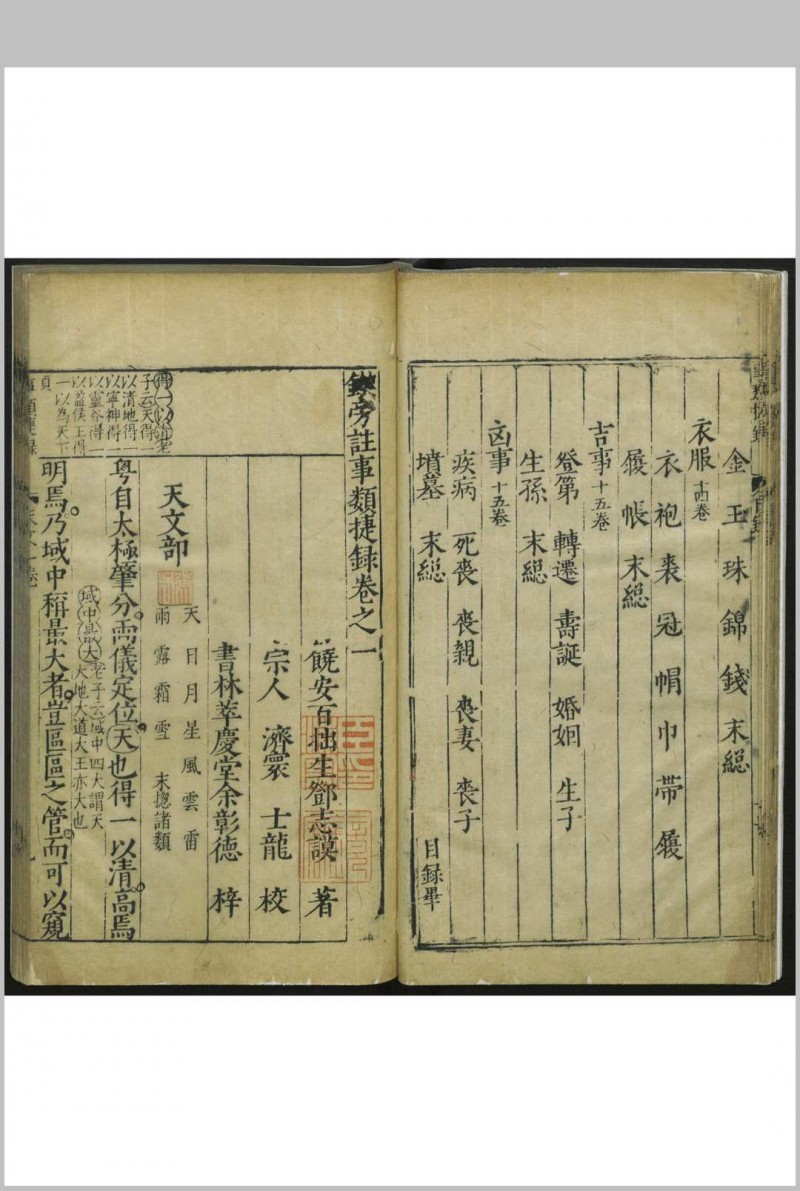 金 玉 珠 錦 錢 末緫
衣服十四卷
衣 袍 裘 冠 帽 巾 帶 履
履 帳 末緫
吉事十五卷
登第 轉遷 壽誕 婚姻 生子
生孫 末緫
凶事十五卷
疾病 死喪 喪親 喪妻 喪子
墳墓 末緫
目録畢
鍥旁註事類捷録卷之一
饒安百拙生鄧志謨 著
宗人 濟寰 士龍 校
書林萃慶堂余彰德 梓
天文部
天 日 月 星 風 雲 雷
雨 露 霜 雪 末緫諸類
粤自太極肇分兩儀定位天也得一以清高焉
域中最大老子云域中四大謂天
大地大道大王亦大也
明焉乃域中稱最大者豈區區之管而可以窺
得一以清老
子云天得一
以清地得一
以寧神得一
以靈谷得一
以盈侯王得
一以為天下
貞